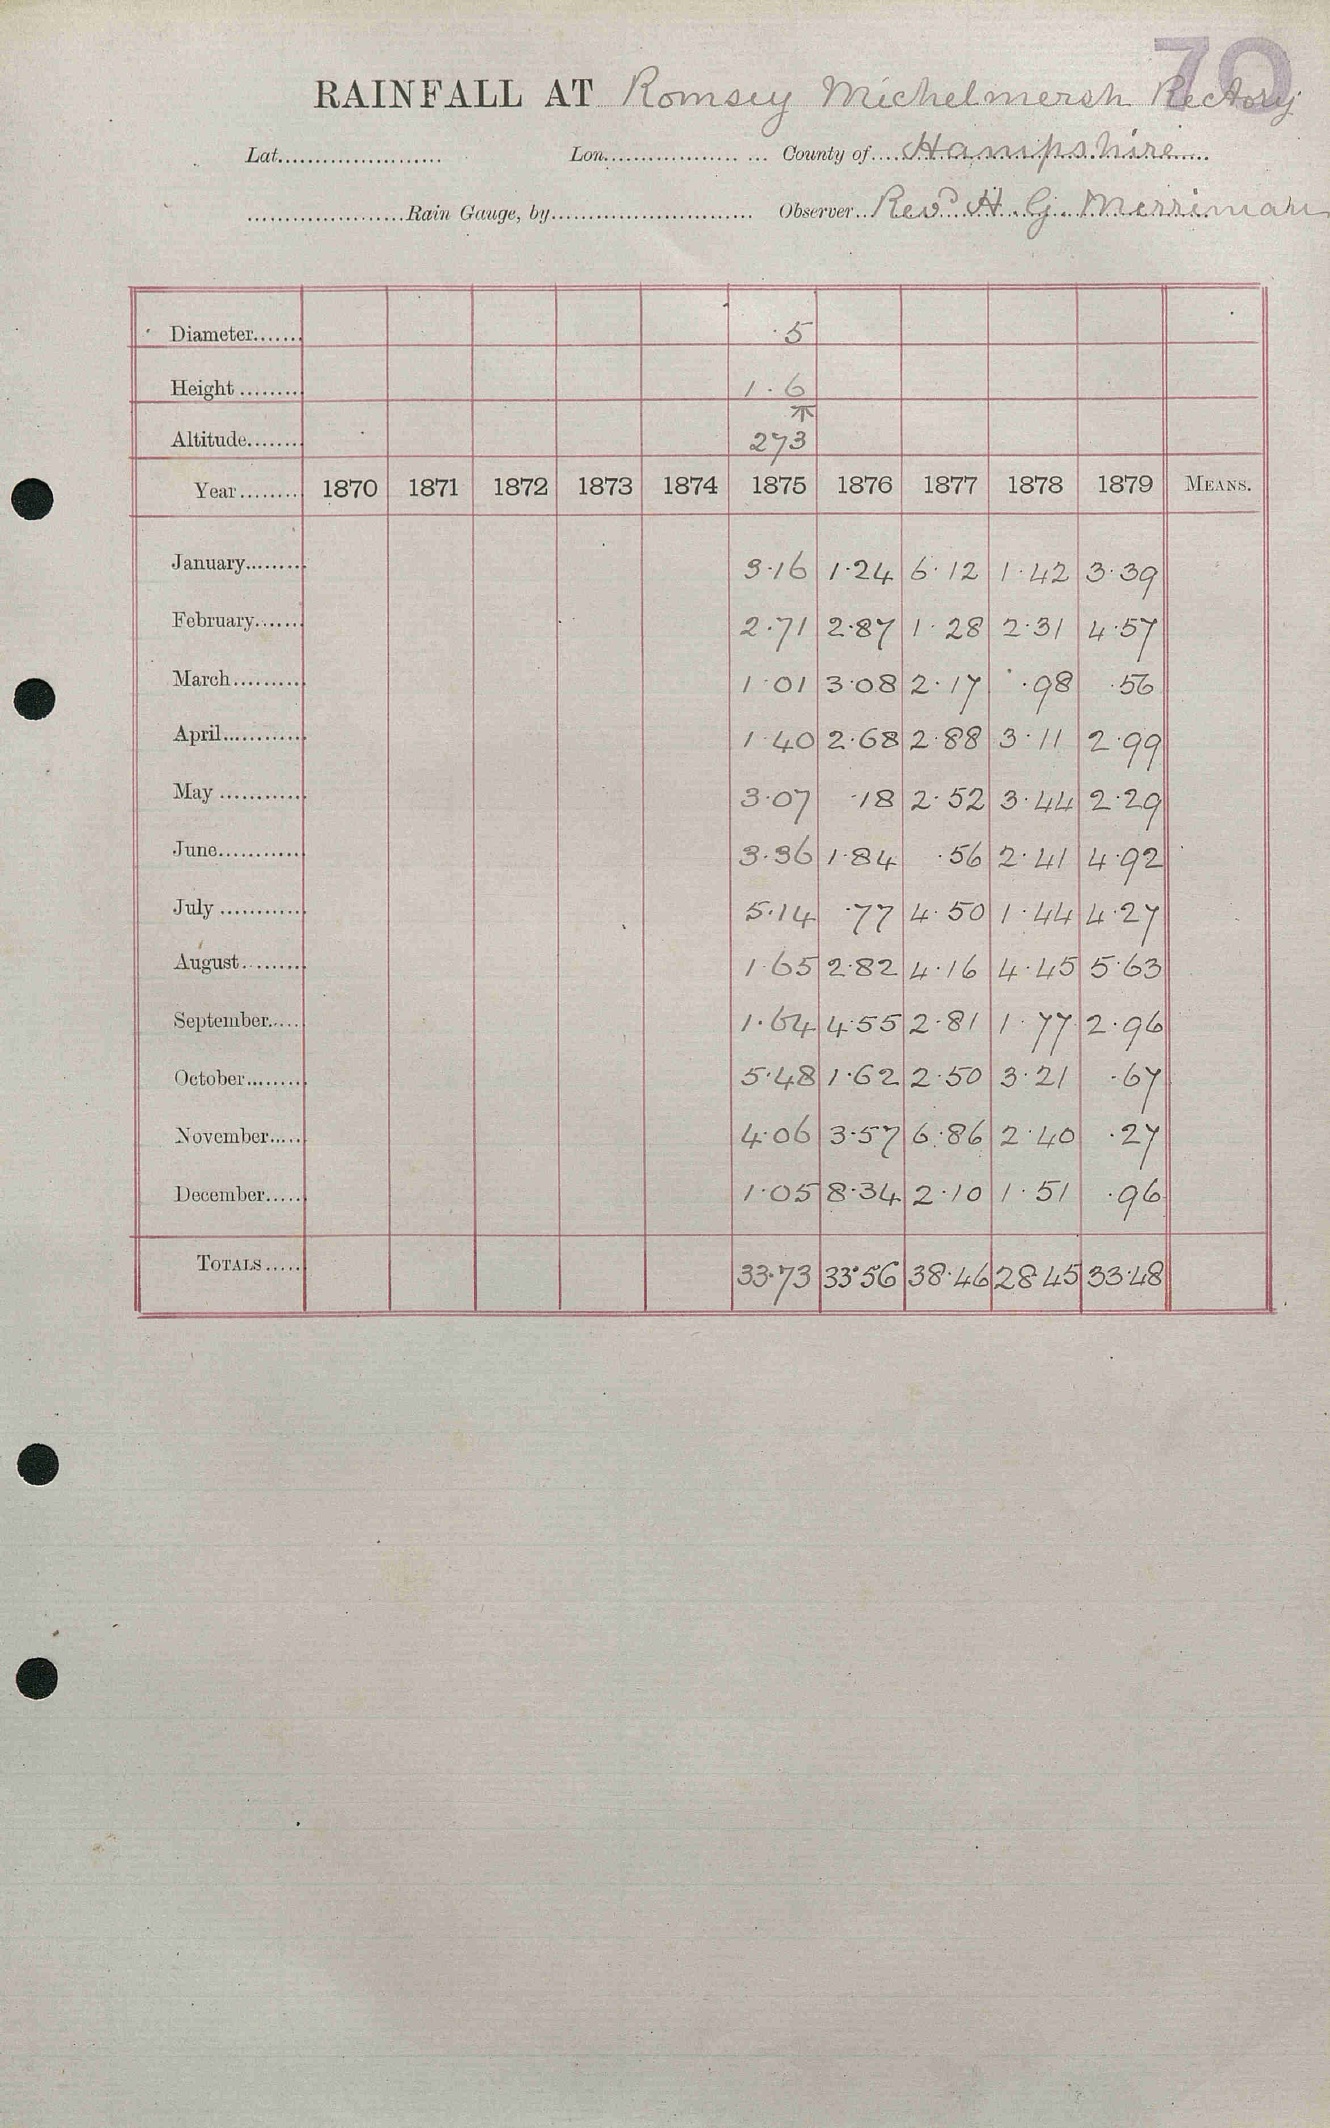 70
RAINFALL AT Romsey Michelmersh Rectory
Lat. Lon. County of Hampshire
Rain Gauge, by Observer Revd H. G. Merriman
Diameter ·5
Height 1·6
Altitude 273
Year 1870 1871 1872 1873 1874 1875 1876 1877 1878 1879 MEANS.
January 3·16 1·24 6·12 1·42 3·39
February 2·71 2·87 1·28 2·31 4·57
March 1·01 3·08 2·17 ·98 ·56
April 1·40 2·68 2·88 3·11 2·99
May 3·07 ·18 2·52 3·44 2·29
June 3·36 1·84 ·56 2·41 4·92
July 5·14 ·77 4·50 1·44 4·27
August 1·65 2·82 4·16 4·45 5·63
September 1·64 4·55 2·81 1·77 2·96
October 5·48 1·62 2·50 3·21 ·67
November 4·06 3·57 6·86 2·40 ·27
December 1·05 8·34 2·10 1·51 ·96
TOTALS 33·73 33·56 38·46 28·45 33·48